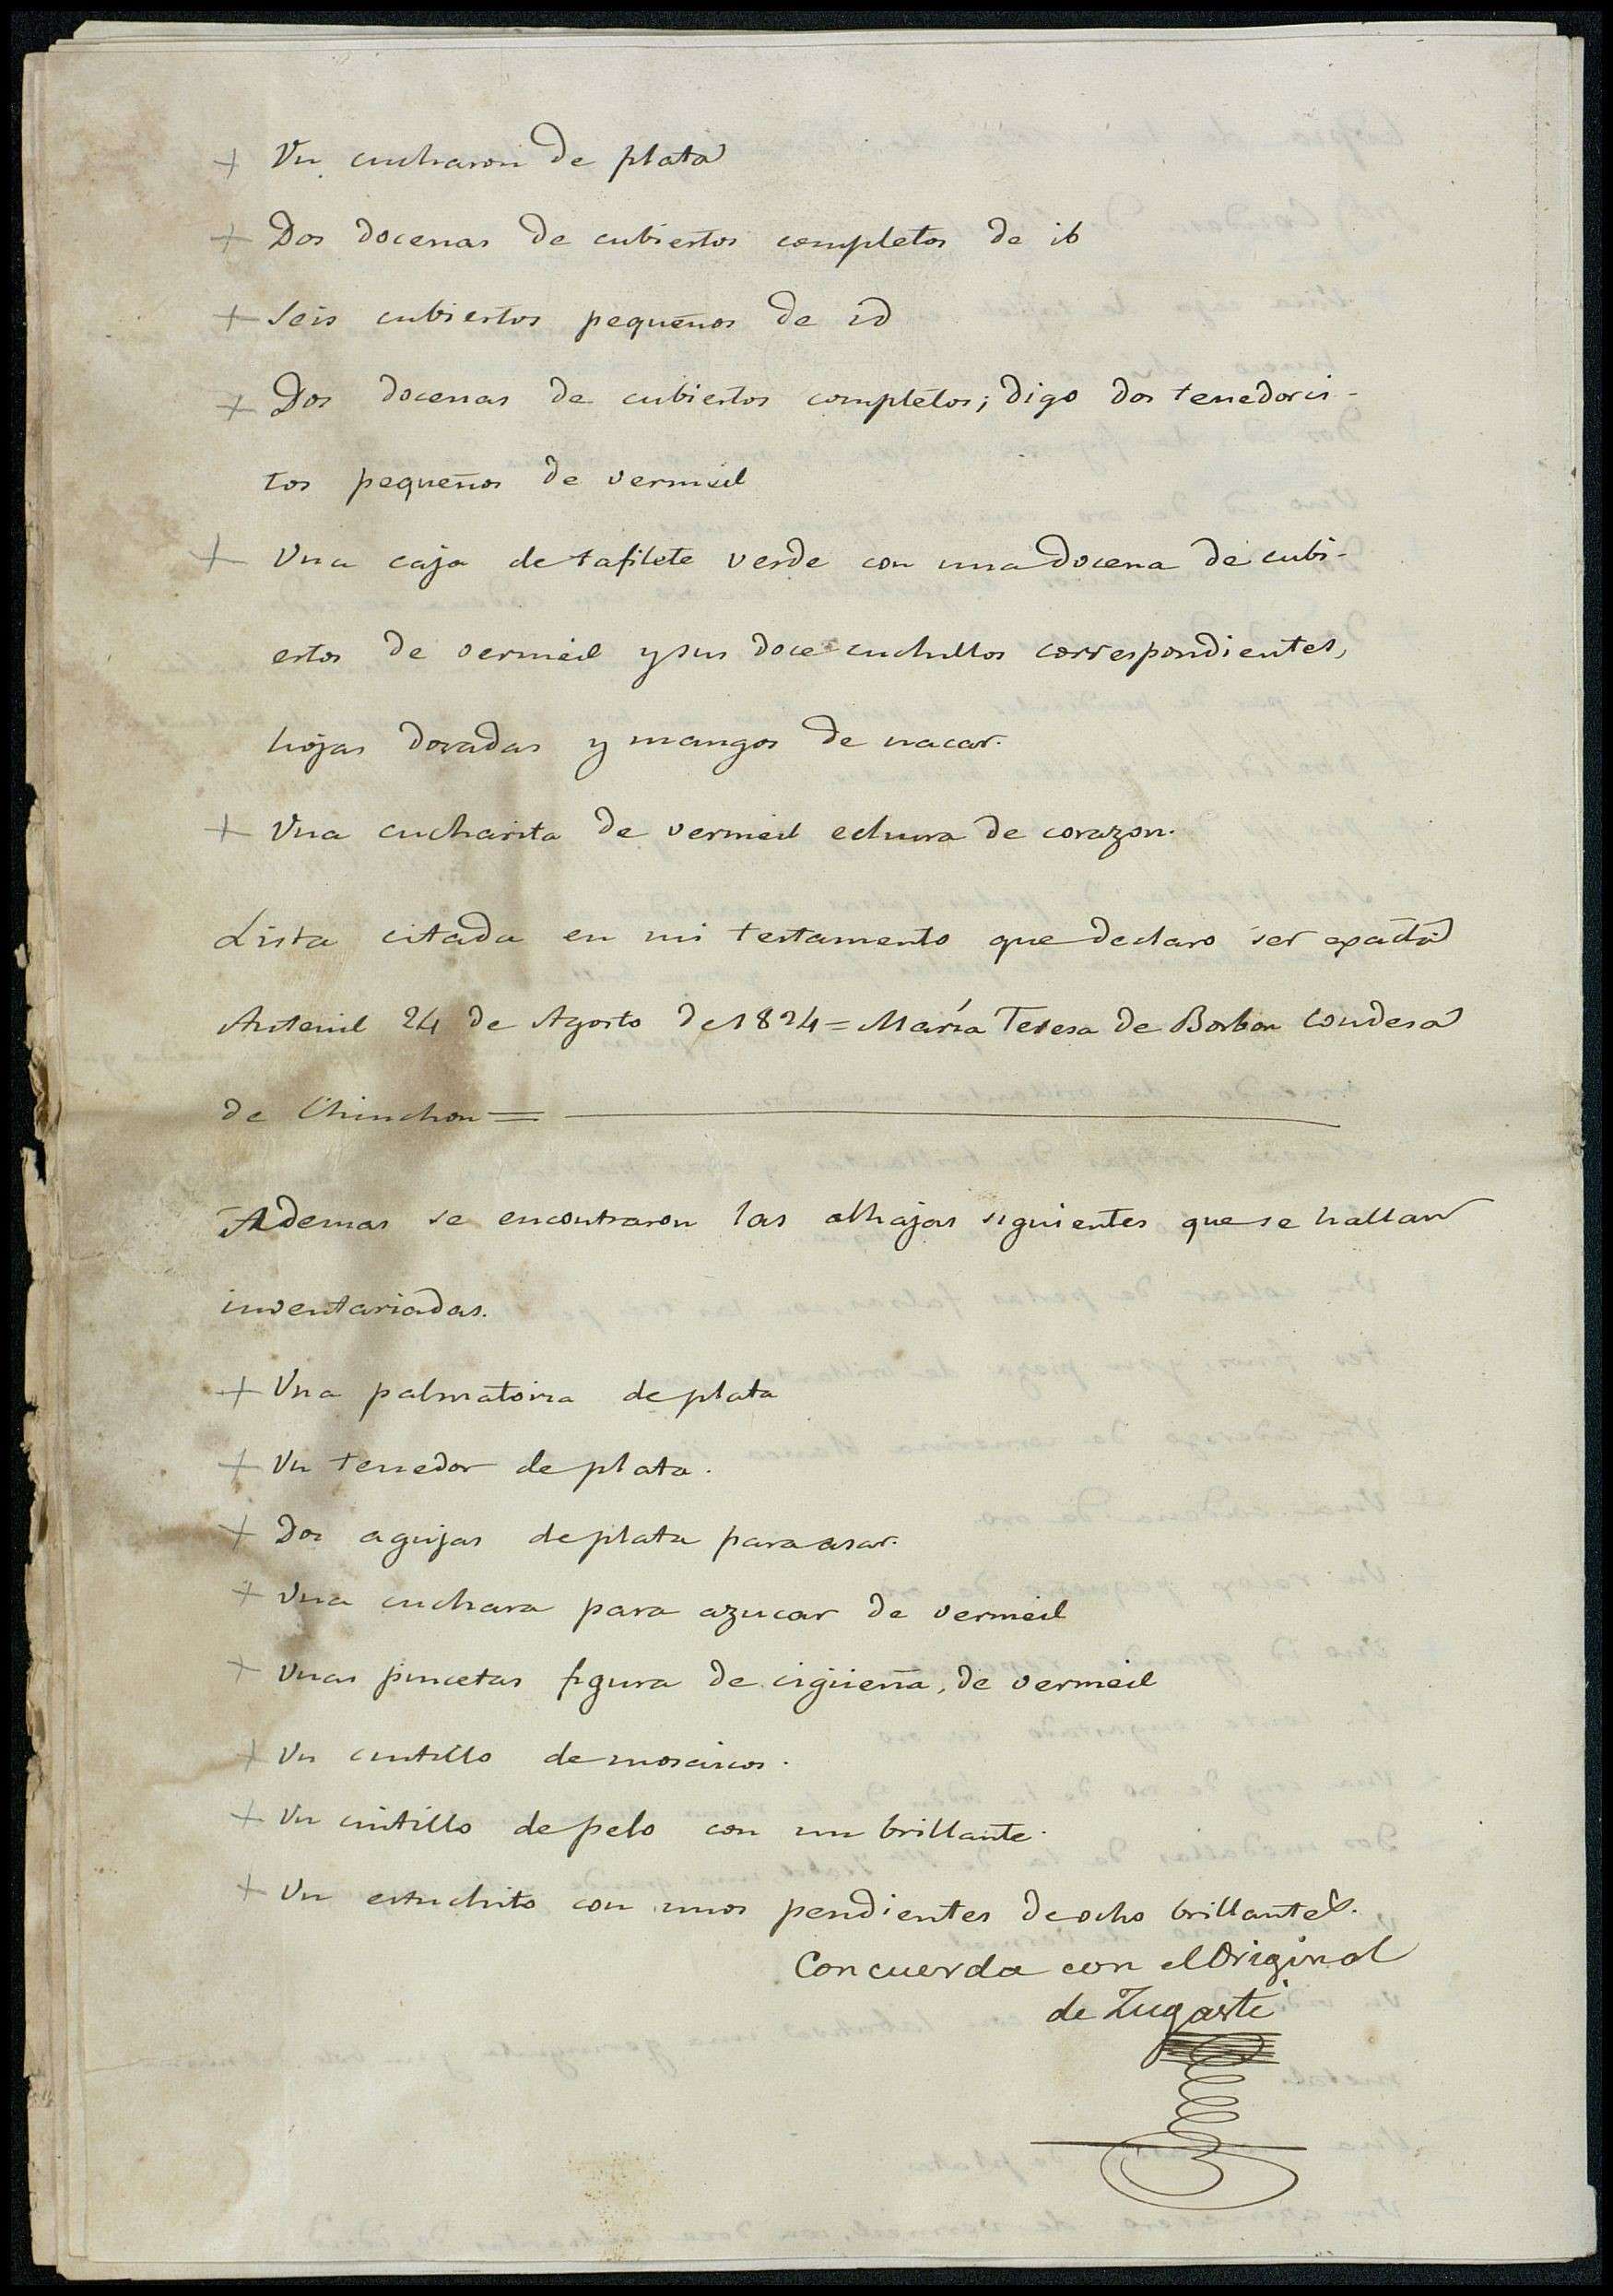 + Un cucharon de plata
+ Dos docenas de cubiertos completos de ib
+ Seis cubiertos pequeños de id
+ Dos docenas de cubiertos completos; digo dos tenedorci-
tos pequeños de vermeil
+ Una caja de tafilete verde con una docena de cubi-
ertos de vermeil y sus doce cuchillos correspondientes,
hojas doradas y mangos de nacar.
+ Una cucharita de vermeil echura de corazon.
Lista citada en mi testamento que declaro ser exacta
Auteuil 24 de Agosto de 1824 = María Teresa de Borbon Condesa
de Chinchon =
Ademas se encontraron las alhajas siguientes que se hallan
inventariadas.
+ Una palmatoria de plata
+ Un tenedor de plata.
+ Dos agujas de plata para asar.
+ Una cuchara para azucar de vermeil
+ Unas pincetas figura de cigüeña, de vermeil
+ Un cintillo de mosaicos.
+ Un cintillo de pelo con un brillante.
+ Un estuchito con unos pendientes de ocho brillantes.
Concuerda con el Original
de Zugasti